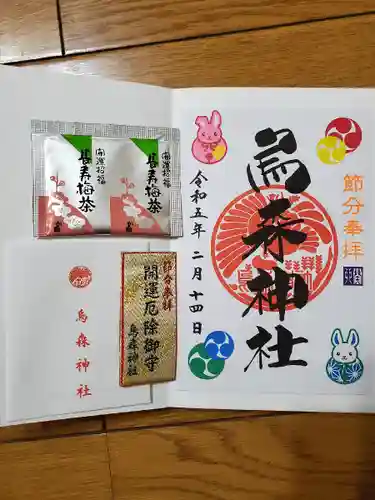 開運招福
長寿梅茶
開運招福
長寿梅茶
烏森神社
節分参拝
開運厄除御守
烏森神社
節分奉拝
烏森神社
令和五年二月十四日